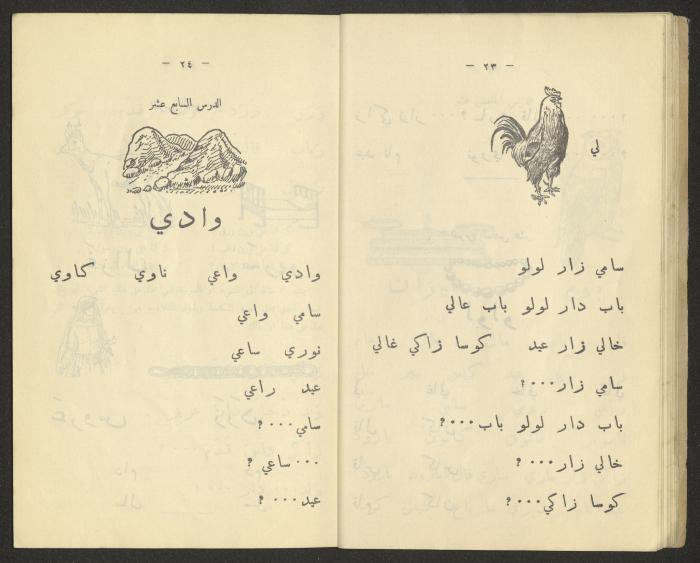 - ٢٣ -
لي
سامي زار لولو
باب دار لولو باب عالي
خالي زار عيد كوسا زاكي غالي
سامي زار...؟
باب دار لولو باب...؟
خالي زار...؟
كوسا زاكي...؟
- ٢٤ -
الدرس السابع عشر
وادي
وادي واعي ناوي كاوي
سامي واعي
نوري ساعي
عيد راعي
سامي...؟
...ساعي ؟
عيد...؟